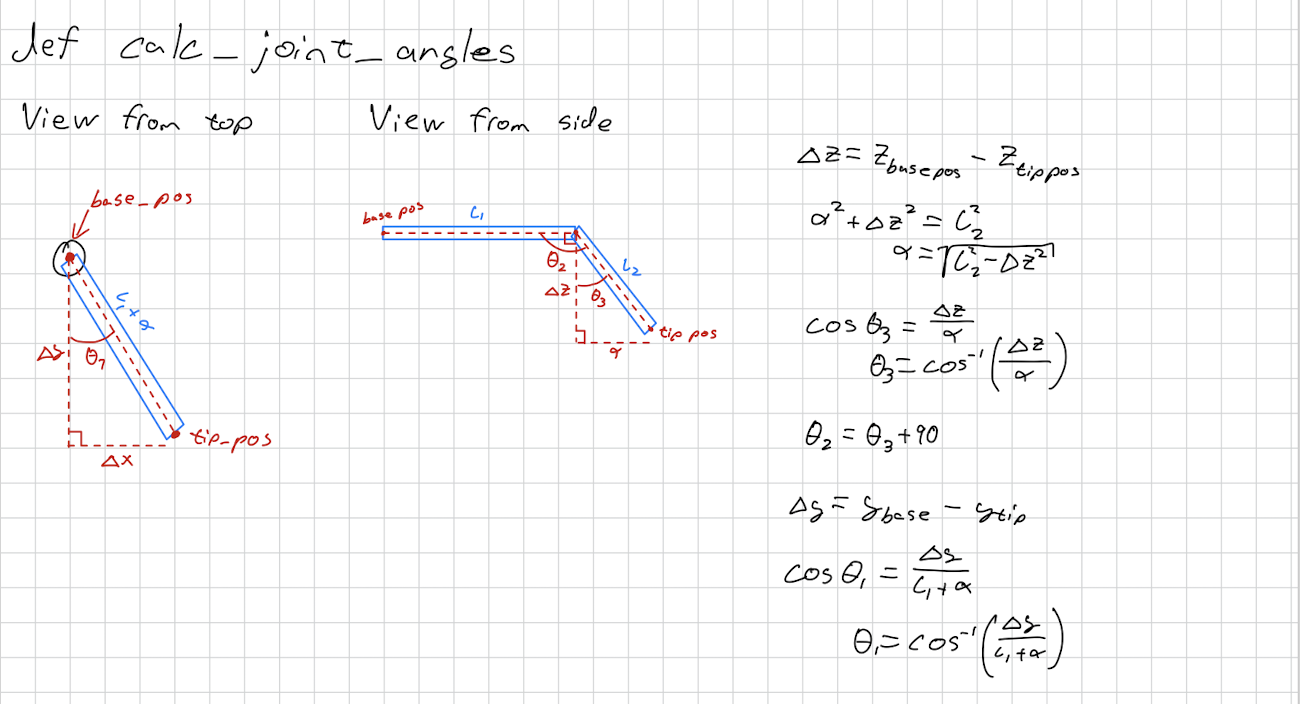 def calc_joint_angles
View from top
View from side
base_pos
L₁+α
Δy
θ₁
tip_pos
Δx
base pos
L₁
θ₂
L₂
Δz
θ₃
tip pos
α
Δz = z_base pos − z_tip pos
α² + Δz² = L₂²
α = √(L₂² − Δz²)
cos θ₃ = Δz/α
θ₃ = cos⁻¹(Δz/α)
θ₂ = θ₃ + 90
Δy = y_base − y_tip
cos θ₁ = Δy/(L₁+α)
θ₁ = cos⁻¹(Δy/(L₁+α))